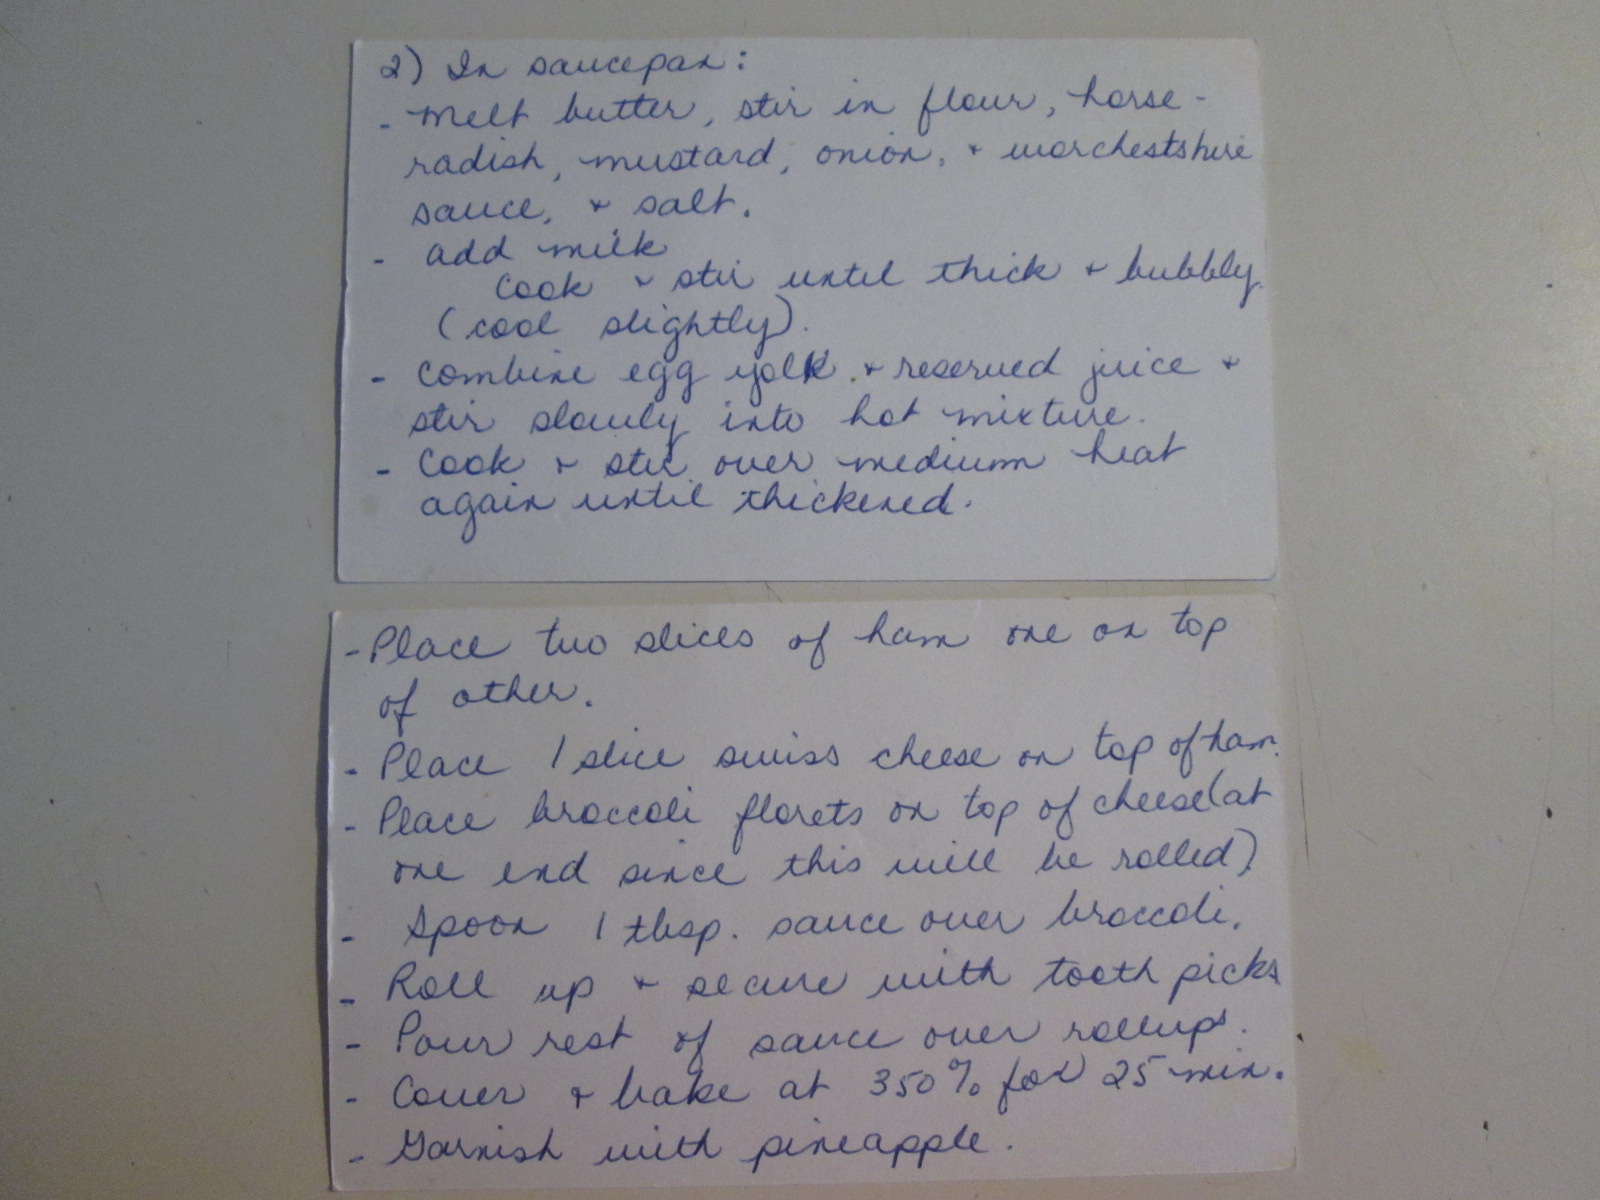 2) In saucepan:
- melt butter, stir in flour, horse-
radish, mustard, onion, + worchestshire
sauce, + salt.
- add milk
cook + stir until thick + bubbly.
(cool slightly).
- combine egg yolk + reserved juice +
stir slowly into hot mixture.
- Cook + stir over medium heat
again until thickened.
- Place two slices of ham one on top
of other.
- Place 1 slice swiss cheese on top of ham.
- Place broccoli florets on top of cheese (at
one end since this will be rolled)
- Spoon 1 tbsp. sauce over broccoli.
- Roll up + secure with tooth picks
- Pour rest of sauce over rollups.
- Cover + bake at 350% for 25 min.
- Garnish with pineapple.